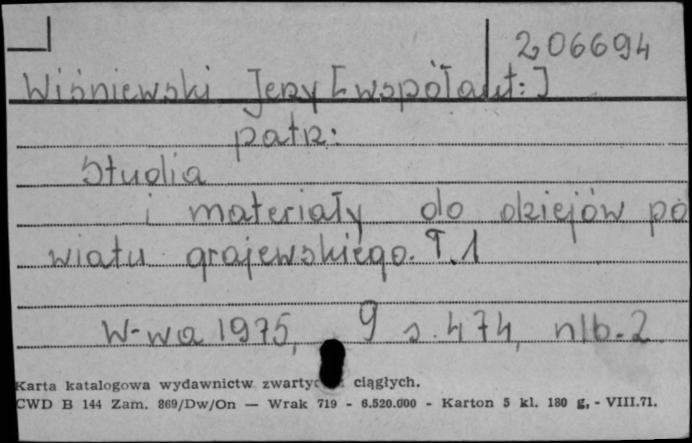 206694
Wiśniewski Jerzy [współaut:]
patrz:
Studia
i materiały do dziejów po
wiatu grajewskiego. T. 1
W-wa 1975, 9 s. 474, nlb. 2
Karta katalogowa wydawnictw ciągłych.
CWD B 144 Zam. 869/Dw/On — Wrak 719 - 6.520.000 - Karton 5 kl. 180 g, - VIII.71.